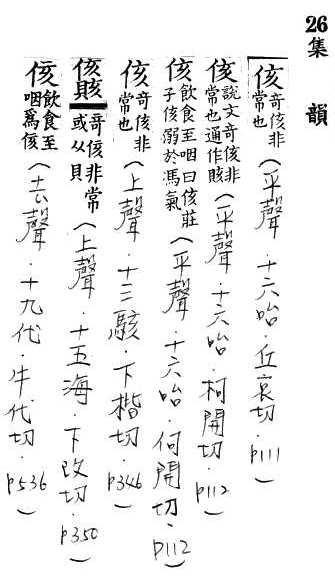 26集 韻
侅奇侅非常也(平聲.十六咍.丘哀切.p111)
侅說文奇侅非常也通作賅(平聲.十六咍.柯開切.p112)
侅飲食至咽曰侅莊子侅溺於馮气(平聲.十六咍.何開切.p112)
侅奇侅非常也(上聲.十三駭.下楷切.p346)
侅賅奇侅非常或从貝(上聲.十五海.下改切.p350)
侅飲食至咽爲侅(去聲.十九代.牛代切.p536)